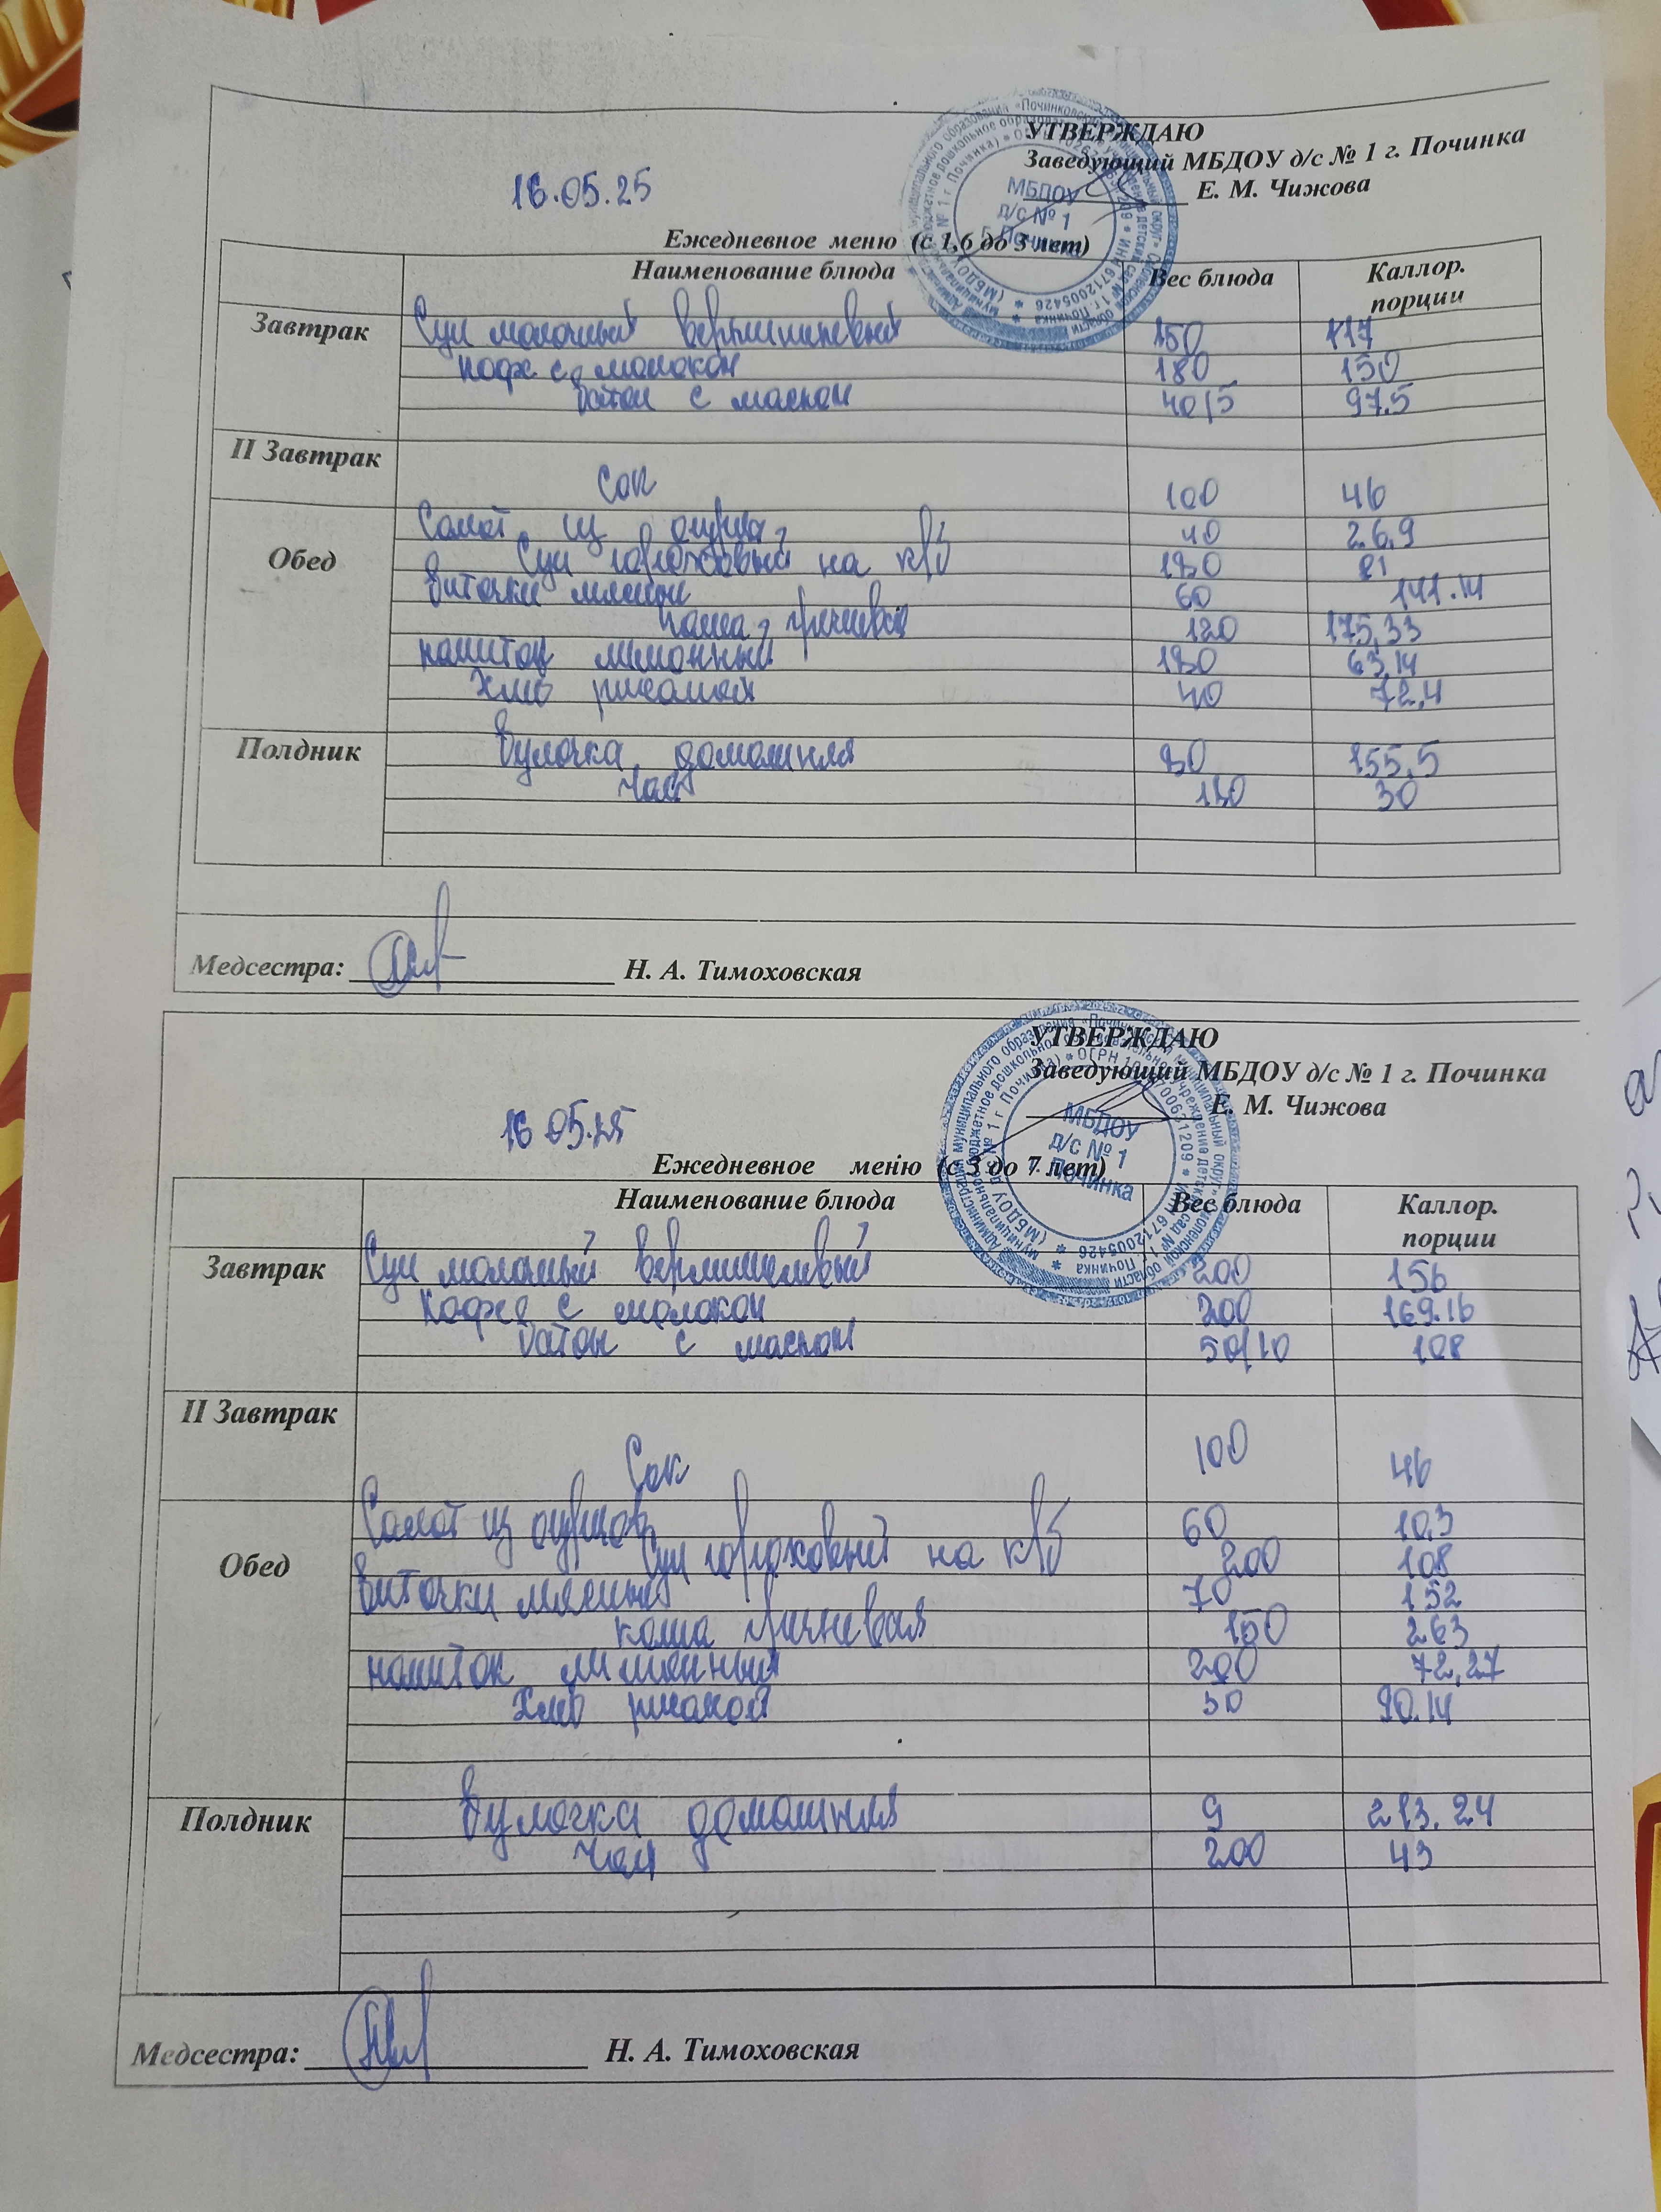 УТВЕРЖДАЮ
Заведующий МБДОУ д/с № 1 г. Починка
Е. М. Чижова
16.05.25
Ежедневное меню (с 1,6 до 3 лет)
Наименование блюда Вес блюда Каллор. порции
Завтрак Суп молочный вермишелевый 150 117
кофе с молоком 180 150
батон с маслом 40/5 97.5
II Завтрак
Сок 100 46
Салат из огурца 40 26,9
Обед Суп гороховый на к/б 180 81
биточки мясные 60 141.14
каша гречневая 120 175,33
напиток лимонный 180 63,14
Хлеб ржаной 40 72,4
Полдник булочка домашняя 80 155,5
Чай 180 30
Медсестра: Н. А. Тимоховская
УТВЕРЖДАЮ
Заведующий МБДОУ д/с № 1 г. Починка
Е. М. Чижова
16.05.25
Ежедневное меню (с 3 до 7 лет)
Наименование блюда Вес блюда Каллор. порции
Завтрак Суп молочный вермишелевый 200 156
Кофе с молоком 200 169.16
батон с маслом 50/10 108
II Завтрак
Сок 100 46
Салат из огурцов 60 10,3
Обед Суп гороховый на к/б 200 108
биточки мясные 70 152
каша гречневая 150 263
напиток лимонный 200 72,27
Хлеб ржаной 50 90.14
Полдник булочка домашняя 9 213.24
Чай 200 43
Медсестра: Н. А. Тимоховская
МБДОУ
д/с № 1
г. Починка